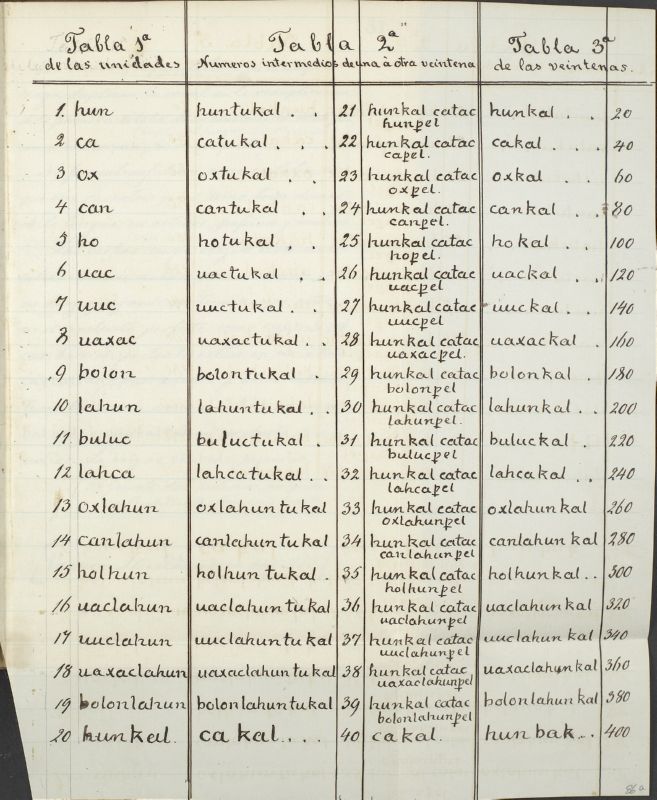 Tabla 1ª Tabla 2ª Tabla 3ª
de las unidades Numeros intermedios de una à otra veintena de las veintenas.
1. hun huntukal . . 21 hunkal catac hunkal . . 20
hunpel
2 ca catukal . . . 22 hunkal catac cakal . . . 40
capel.
3 ox oxtukal . . 23 hunkal catac oxkal . . . 60
oxpel.
4 can cantukal . . 24 hunkal catac cankal . . . 80
canpel.
5 ho hotukal . . 25 hunkal catac hokal . . 100
hopel.
6 uac uactukal . . 26 hunkal catac uackal . . 120
uacpel
7 uuc uuctukal . . 27 hunkal catac uuckal . . 140
uucpel
8 uaxac uaxactukal . . 28 hunkal catac uaxackal . 160
uaxacpel.
9 bolon bolontukal . 29 hunkal catac bolonkal . 180
bolonpel
10 lahun lahuntukal . . 30 hunkal catac lahunkal . . 200
lahunpel.
11 buluc buluctukal . . 31 hunkal catac buluckal . 220
bulucpel
12 lahca lahcatukal . . 32 hunkal catac lahcakal . . 240
lahcapel
13 oxlahun oxlahuntukal 33 hunkal catac oxlahunkal 260
oxlahunpel
14 canlahun canlahuntukal 34 hunkal catac canlahunkal 280
canlahunpel
15 holhun holhuntukal . 35 hunkal catac holhunkal . . 300
holhunpel
16 uaclahun uaclahuntukal 36 hunkal catac uaclahunkal 320
uaclahunpel
17 uuclahun uuclahuntukal 37 hunkal catac uuclahunkal 340
uuclahunpel
18 uaxaclahun uaxaclahuntukal 38 hunkal catac uaxaclahunkal 360
uaxaclahunpel
19 bolonlahun bolonlahuntukal 39 hunkal catac bolonlahunkal 380
bolonlahunpel
20 hunkal. cakal . . . 40 cakal. hunbak . . 400
86a